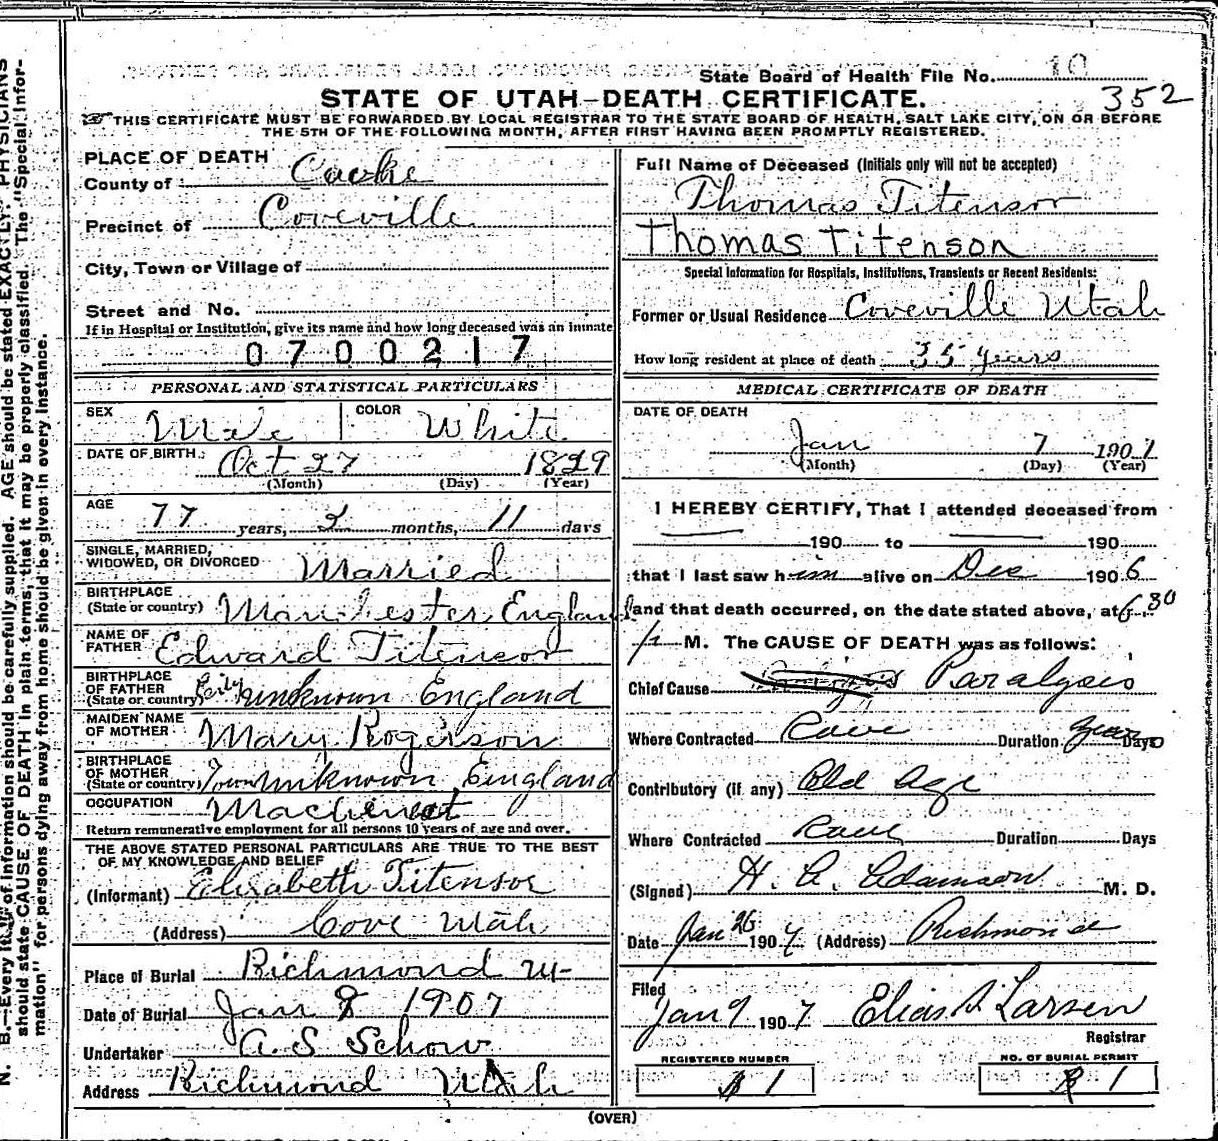 N. B.—Every item of information should be carefully supplied. AGE should be stated EXACTLY. PHYSICIANS
should state CAUSE OF DEATH in plain terms, that it may be properly classified. The "Special Infor-
mation" for persons dying away from home should be given in every instance.
State Board of Health File No. 10
352
STATE OF UTAH—DEATH CERTIFICATE.
THIS CERTIFICATE MUST BE FORWARDED BY LOCAL REGISTRAR TO THE STATE BOARD OF HEALTH, SALT LAKE CITY, ON OR BEFORE
THE 5TH OF THE FOLLOWING MONTH, AFTER FIRST HAVING BEEN PROMPTLY REGISTERED.
PLACE OF DEATH
County of Cache
Precinct of Coveville
City, Town or Village of
Street and No.
If in Hospital or Institution, give its name and how long deceased was an inmate
0700217
PERSONAL AND STATISTICAL PARTICULARS
SEX Male COLOR White
DATE OF BIRTH Oct 27 1829
(Month) (Day) (Year)
AGE 77 years, 2 months, 11 days
SINGLE, MARRIED,
WIDOWED, OR DIVORCED Married
BIRTHPLACE
(State or country) Manchester England
NAME OF
FATHER Edward Titensor
BIRTHPLACE
OF FATHER
(State or country) City unknown England
MAIDEN NAME
OF MOTHER Mary Rogerson
BIRTHPLACE
OF MOTHER
(State or country) Town unknown England
OCCUPATION Machinest
Return remunerative employment for all persons 10 years of age and over.
THE ABOVE STATED PERSONAL PARTICULARS ARE TRUE TO THE BEST
OF MY KNOWLEDGE AND BELIEF
(Informant) Elisabeth Titensor
(Address) Cove Utah
Place of Burial Richmond
Date of Burial Jan 8 1907
Undertaker A. S Schow
Address Richmond Utah
Full Name of Deceased (Initials only will not be accepted)
Thomas Titensor
Thomas Titenson
Special Information for Hospitals, Institutions, Transients or Recent Residents:
Former or Usual Residence Coveville Utah
How long resident at place of death 35 years
MEDICAL CERTIFICATE OF DEATH
DATE OF DEATH
Jan 7 1907
(Month) (Day) (Year)
I HEREBY CERTIFY, That I attended deceased from
190 to 190
that I last saw him alive on Dec 1906
and that death occurred, on the date stated above, at 6.30
P M. The CAUSE OF DEATH was as follows:
Chief Cause Paralysis
Where Contracted Cove Duration years Days
Contributory (if any) Old Age
Where Contracted Cove Duration Days
(Signed) H. A. Adamson M. D.
Date Jan 26 1907 (Address) Richmond
Filed
Jan 9 1907 Elias S. Larsen
Registrar
REGISTERED NUMBER
1
NO. OF BURIAL PERMIT
1
(OVER)